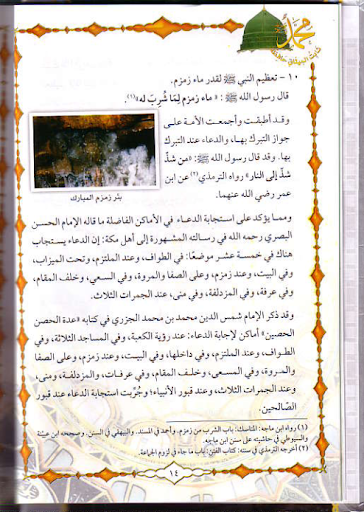 محمد ﷺ
١٠ - تعظيم النبي ﷺ لقدر ماء زمزم.
قال رسول الله ﷺ : « ماء زمزم لِمَا شُرِبَ له»(١).
وقد أطبقت وأجمعت الأمة على
جواز التبرك بهـا، والدعاء عند التبرك
بها. وقد قال رسول الله ﷺ: «من شذّ
شذّ إلى النار» رواه الترمذي(٢) عن ابن
عمر رضي الله عنهما.
بئر زمزم المبارك
ومما يؤكد على استجابة الدعاء في الأماكن الفاضلة ما قاله الإمام الحسن
البصري رحمه الله في رسالته المشهورة إلى أهل مكة: إن الدعاء يستجاب
هناك في خمسة عشر موضعًا: في الطواف، وعند الملتزم، وتحت الميزاب،
وفي البيت، وعند زمزم، وعلى الصفا والمروة، وفي السعي، وخلف المقام،
وفي عرفة، وفي المزدلفة، وفي منى، وعند الجمرات الثلاث.
وقد ذكر الإمام شمس الدين محمد بن محمد الجزري في كتابه «عدة الحصن
الحصين» أماكن لإجابة الدعاء: عند رؤية الكعبة، وفي المساجد الثلاثة، وفي
الطواف، وعند الملتزم، وفي داخلها، وفي البيت، وعند زمزم، وعلى الصفا
والمروة، وفي المسعى، وخلف المقام، وفي عرفات، والمزدلفة، ومنى،
وعند الجمرات الثلاث، وعند قبور الأنبياء؛ وجُرِّبت استجابة الدعاء عند قبور
الصّالحين.
(١) رواه ابن ماجه: المناسك: باب الشرب من زمزم. وأحمد في المسند. والبيهقي في السنن. وصححه ابن عيينة
والسيوطي في حاشيته على سنن ابن ماجه.
(٢) أخرجه الترمذي في سننه: كتاب الفتن: باب ما جاء في لزوم الجماعة.
١٤